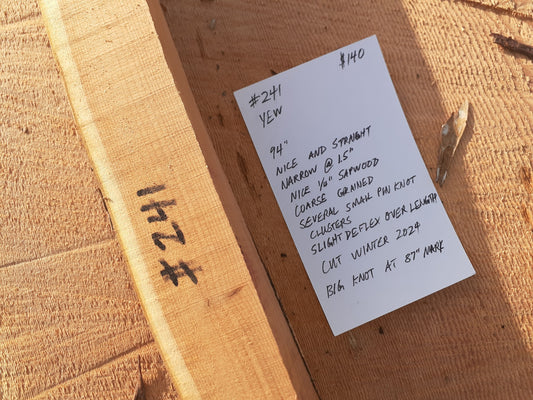 #241
$140
#241
YEW
94"
NICE AND STRAIGHT
NARROW @ 1.5"
NICE 1/8" SAPWOOD
COARSE GRAINED
SEVERAL SMALL PIN KNOT
CLUSTERS
SLIGHT DEFLEX OVER LENGTH
CUT WINTER 2024
BIG KNOT AT 87" MARK